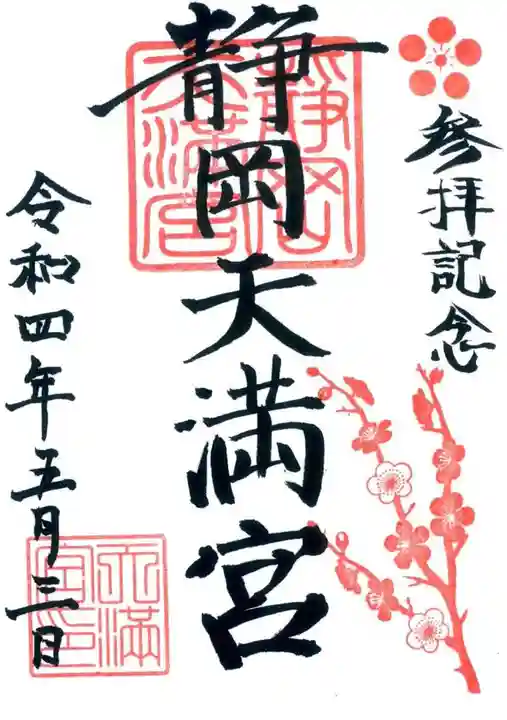 參拝記念
静岡天満宮
令和四年五月三日
靜岡天滿宮
天滿宮印